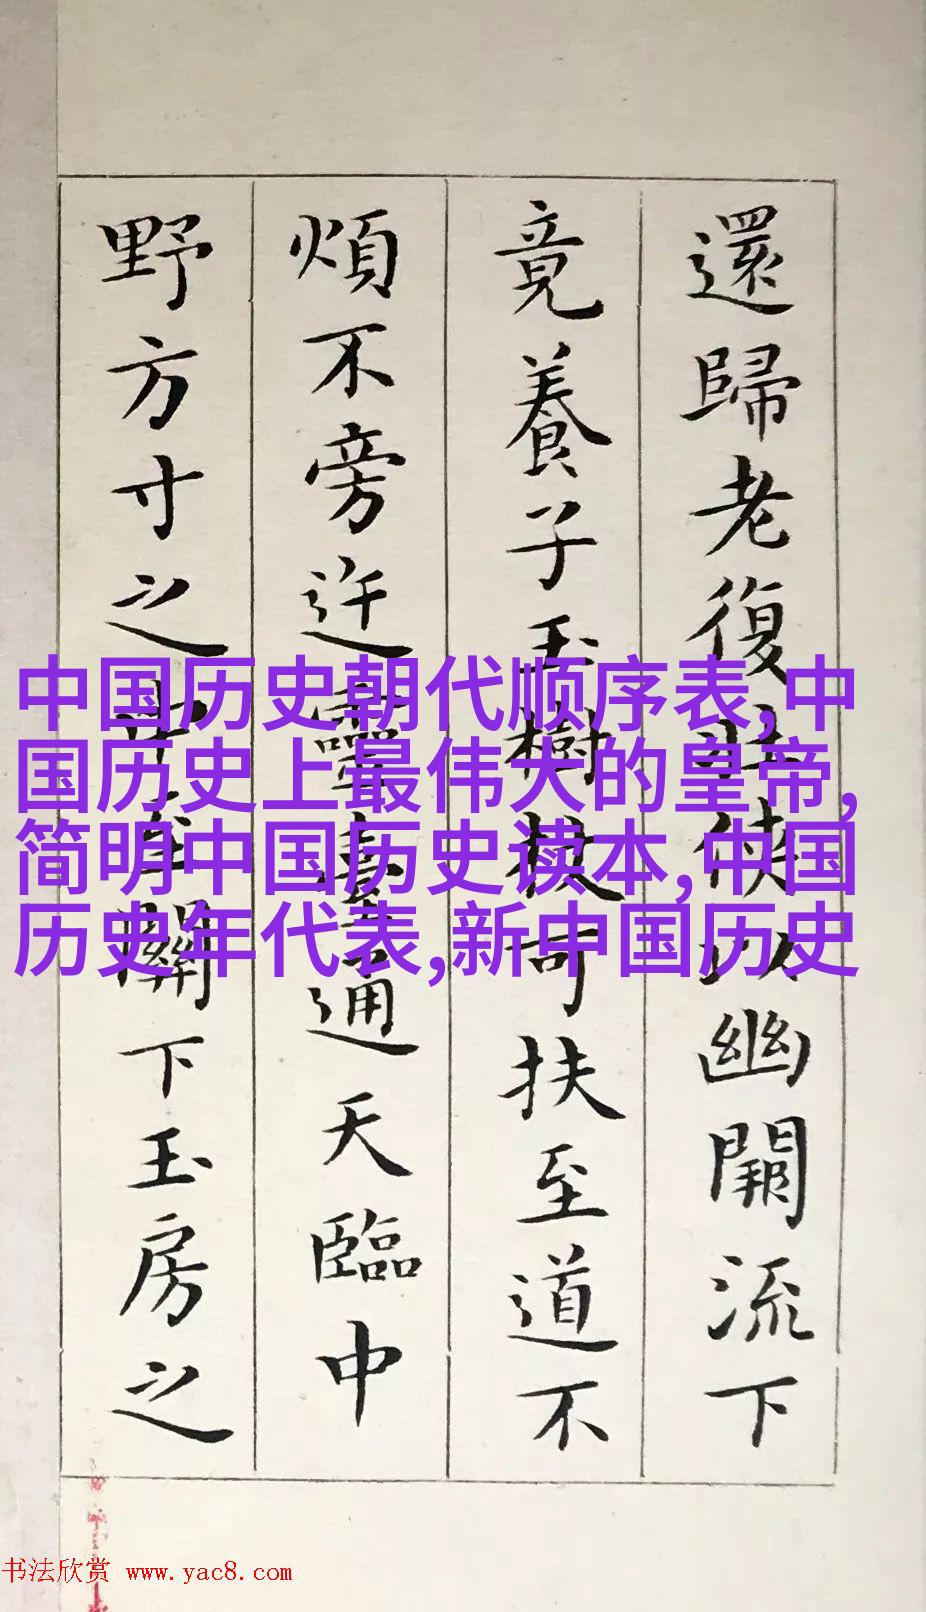 還歸老復壯俠以幽闕流下
竟養子玉樹杖可扶至道不
煩不旁迕靈臺通天臨中
野方寸之中至關下玉房之
中国历史朝代顺序表,中
国历史上最伟大的皇帝,
简明中国历史读本,中国
历史年代表,新中国历史
书法欣赏 www.yac8.com